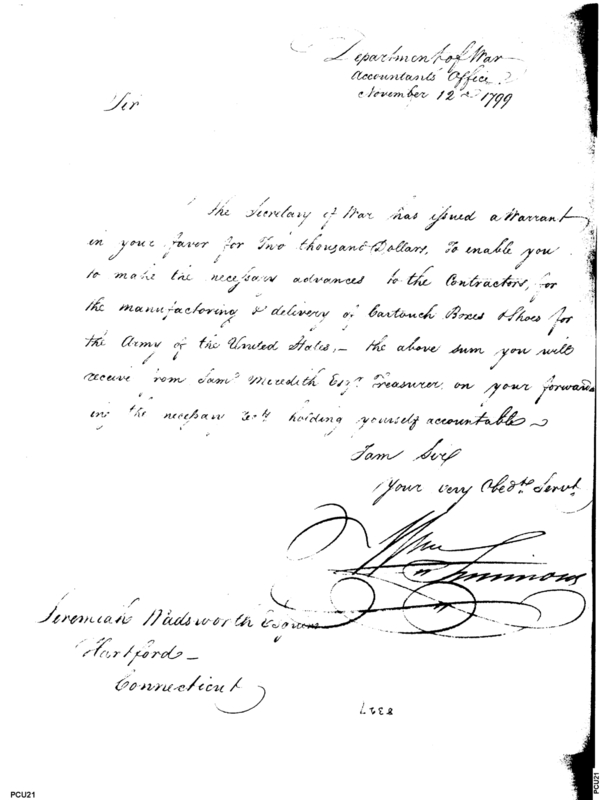 Department of War
Accountants Office
November 12th 1799
Sir
The Secretary of War has issued a Warrant
in your favor for Two thousand Dollars, To enable you
to make the necessary advances to the Contractors, for
the manufactoring & delivery of Cartouch Boxes & Shoes for
the Army of the United States,— the above sum you will
receive from Saml Meredith Esqr. Treasurer on your forward
ing the necessary rects. holding yourself accountable—
I am Sir
Your very Obedt. Servt.
Wm Simmons
Jeremiah Wadsworth Esquire
Hartford—
Connecticut
8327
PCU21
PCU21